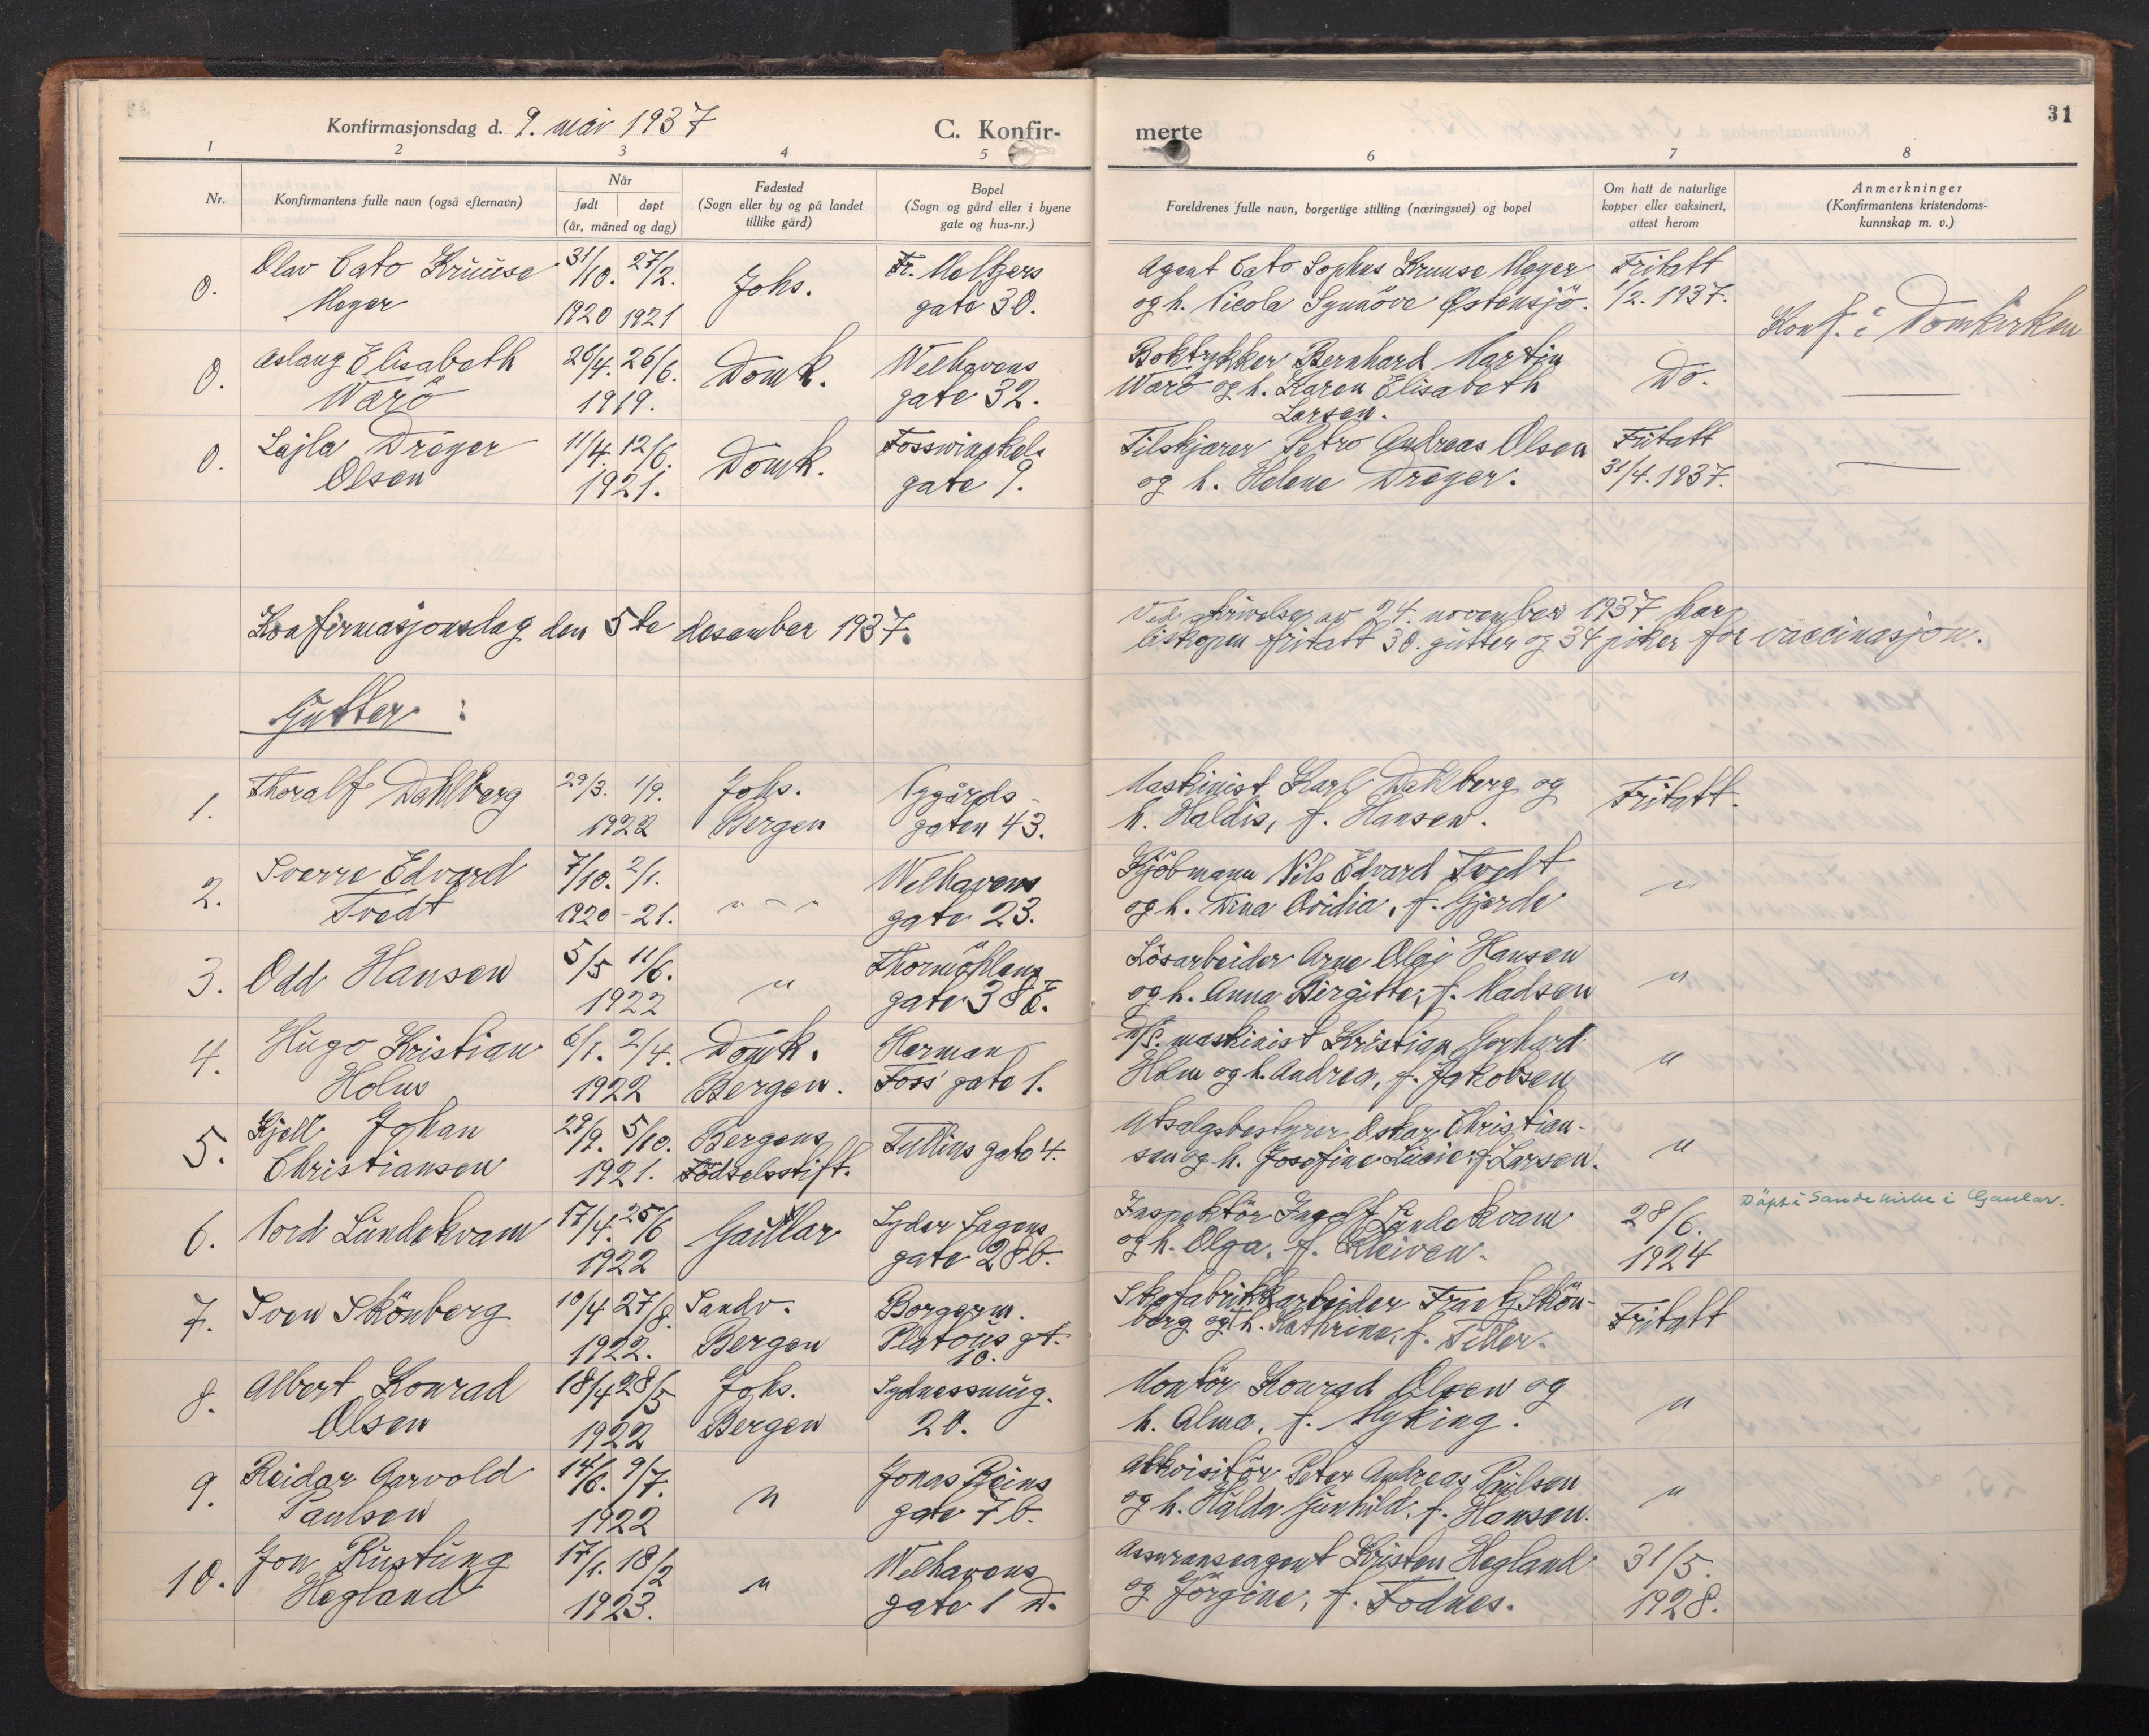 31
Konfirmasjonsdag d. 9. mai 1937
C. Konfir-
merte
1 2 3 4 5 6 7 8
Nr.
Konfirmantens fulle navn (også efternavn)
Når
født døpt
(år, måned og dag)
Fødested
(Sogn eller by og på landet
tillike gård)
Bopel
(Sogn og gård eller i byene
gate og hus-nr.)
Foreldrenes fulle navn, borgerlige stilling (næringsvei) og bopel
Om hatt de naturlige
kopper eller vaksinert,
attest herom
Anmerkninger
(Konfirmantens kristendoms-
kunnskap m. v.)
0. Olav Cato Kruuse 31/10. 27/2. Johs. Fr. Meltzers Agent Cato Sophus Kruuse Meyer Fritatt
Meyer 1920 1921 gate 30. og h. Nicola Synnöve Østensjö. 1/2. 1937. Konf. i Domkirken
0. Aslaug Elisabeth 26/4. 26/6. Domk. Welhavens Boktrykker Bernhard Martin Do.
Wærö 1919. gate 32. Wærö og h. Karen Elisabeth
Larsen.
0. Lajla Dreyer 11/4. 12/6. Domk. Fosswinckels Tilskjærer Petro Andreas Olsen Fritatt
Olsen 1921. gate 9. og h. Helene Dreyer. 31/4. 1937.
Konfirmasjonsdag den 5te desember 1937.
Ved skrivelse av 24. november 1937 har
biskopen fritatt 30. gutter og 34 piker for vaccinasjon.
Gutter :
1. Thoralf Dahlberg 29/3. 1/9. Johs. Nygårds- Maskinist Karl Dahlberg og Fritatt.
1922 Bergen gaten 43. h. Haldis, f. Hansen.
2. Sverre Edvard 7/10. 2/1. Welhavens Kjöbmann Nils Edvard Tvedt "
Tvedt 1920 - 21. " - " gate 23. og h. Dina Ovidia, f. Gjerde
3. Odd Hansen 5/5 11/6. " Thormöhlens Lösarbeider Arne Olai Hansen "
1922 gate 38 E. og h. Anna Birgitte, f. Madsen
4. Hugo Kristian 6/1. 2/4. Domk. Herman maskinist Kristian Gerhard "
Holm 1922 Bergen. Foss' gate 1. Holm og h. Andrea, f. Jakobsen
5. Kjell Johan 29/9. 5/10. Bergens Tullins gate 4. Utsalgsbestyrer Oskar Christian- "
Christiansen 1921. Födselsstift. sen og h. Josefine Lucie f. Larsen.
6. Nord Lundekvam 17/4. 25/6 Gaular Lyder Sagens Inspektör Ingolf Lundekvam 28/6. Döpt i Sande kirke i Gaular.
1922 gate 28 b. og h. Olga, f. Kleiven. 1924
7. Sven Skönberg 10/4 27/8. Sandv. Borgerm. Skofabrikkarbeider Frantz Skön- Fritatt
1922. Bergen Platous gt. berg og h. Kathrine, f. Teller.
10.
8. Albert Konrad 18/4 28/5 Johs. Sydnessmug. Montör Konrad Olsen og "
Olsen 1922 Bergen 20. h. Alma, f. Myking.
9. Reidar Aarvold 14/6. 9/7. " Jonas Reins Akkvisitör Peter Andreas Paulsen "
Paulsen 1922 gate 7 b. og h. Hulda Gunhild, f. Hansen.
10. Jon Rustung 17/1. 18/2 " Welhavens Assuranseagent Kristen Hegland 31/5.
Hegland 1923. gate 1 D. og Jörgine, f. Fodnes. 1928.